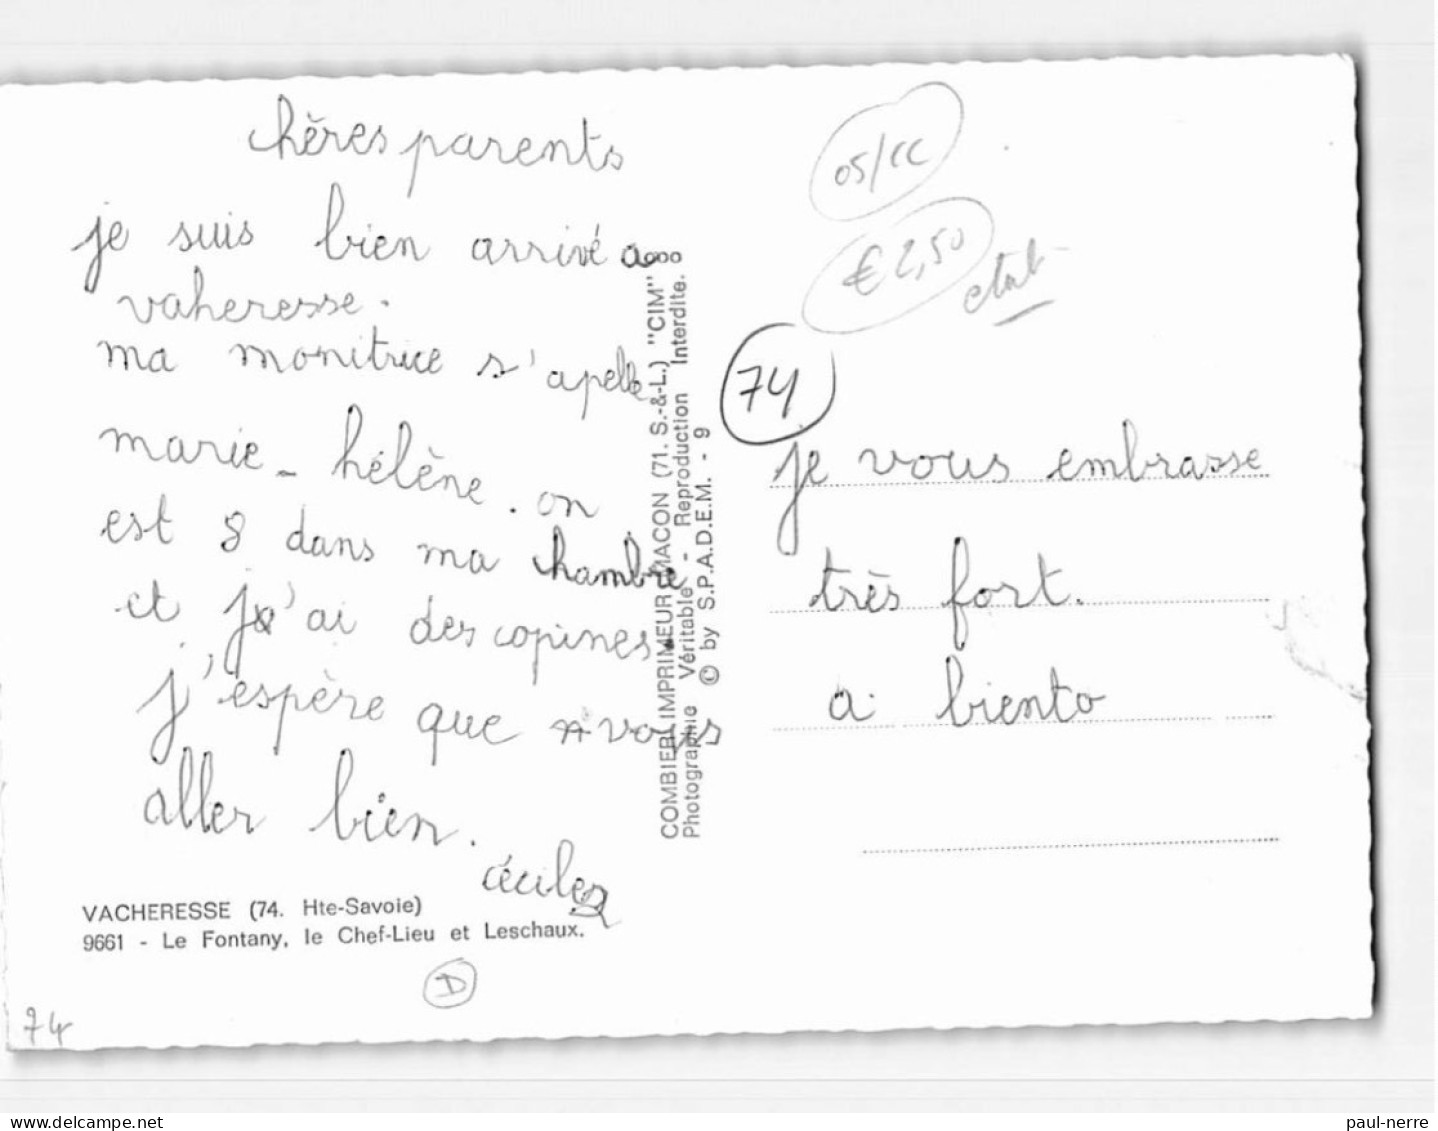 chères parents
je suis bien arrivé a
vaheresse.
ma monitrice s'apelle
marie-hélène. on
est 8 dans ma chambre
et j'ai des copines.
j'espère que vous
aller bien.
cécile
VACHERESSE (74. Hte-Savoie)
9661 - Le Fontany, le Chef-Lieu et Leschaux.
D
74
COMBIER IMPRIMEUR MACON (71. S.-&-L.) "CIM"
Photographie Véritable - Reproduction Interdite.
© by S.P.A.D.E.M. - 9
05/CC
€ 2,50
etat
74
je vous embrasse
très fort.
a biento
delcampe.net
paul-nerre